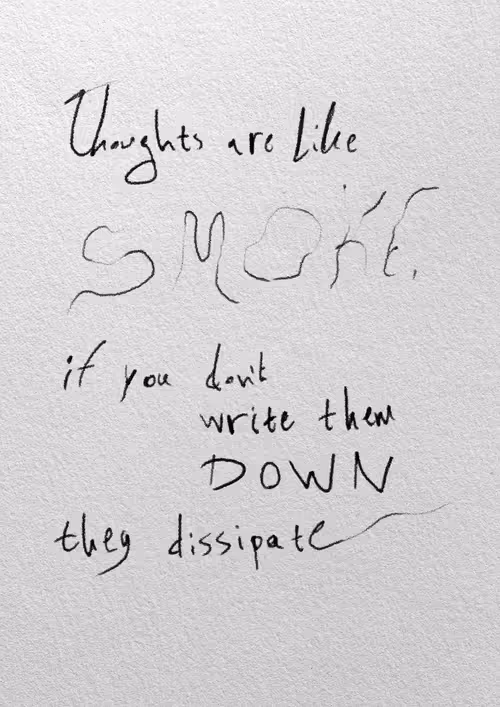 Thoughts are like
SMOKE.
if you don't
write them
DOWN
they dissipate